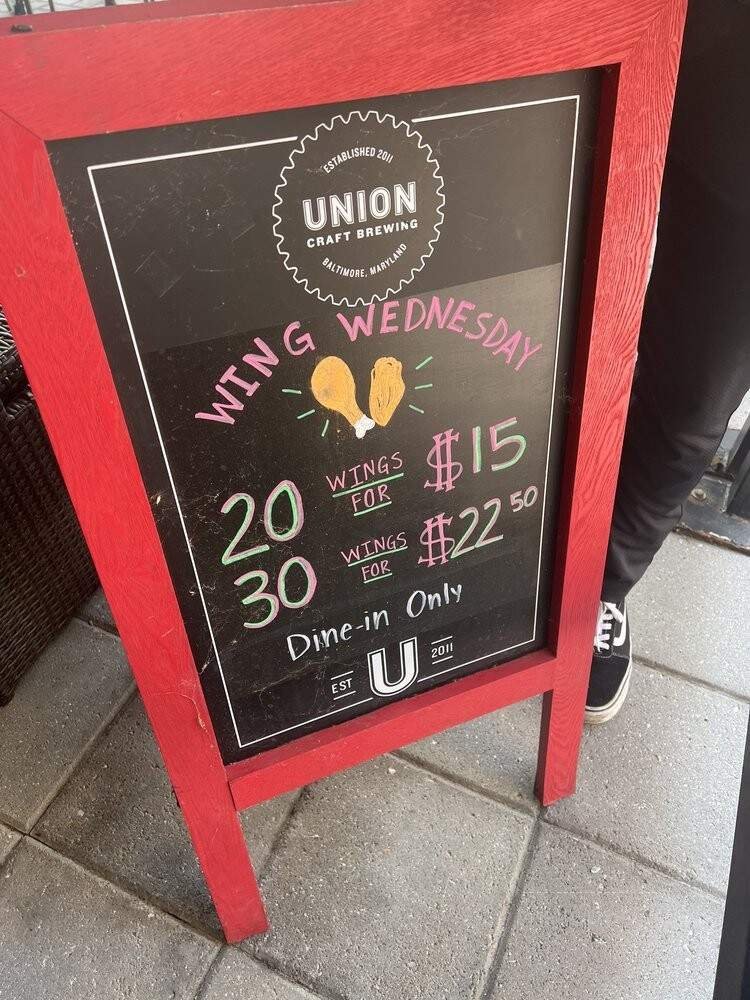 ESTABLISHED 2011
UNION
CRAFT BREWING
BALTIMORE, MARYLAND
WING WEDNESDAY
20 WINGS FOR $15
30 WINGS FOR $22 50
Dine-in Only
EST U 2011